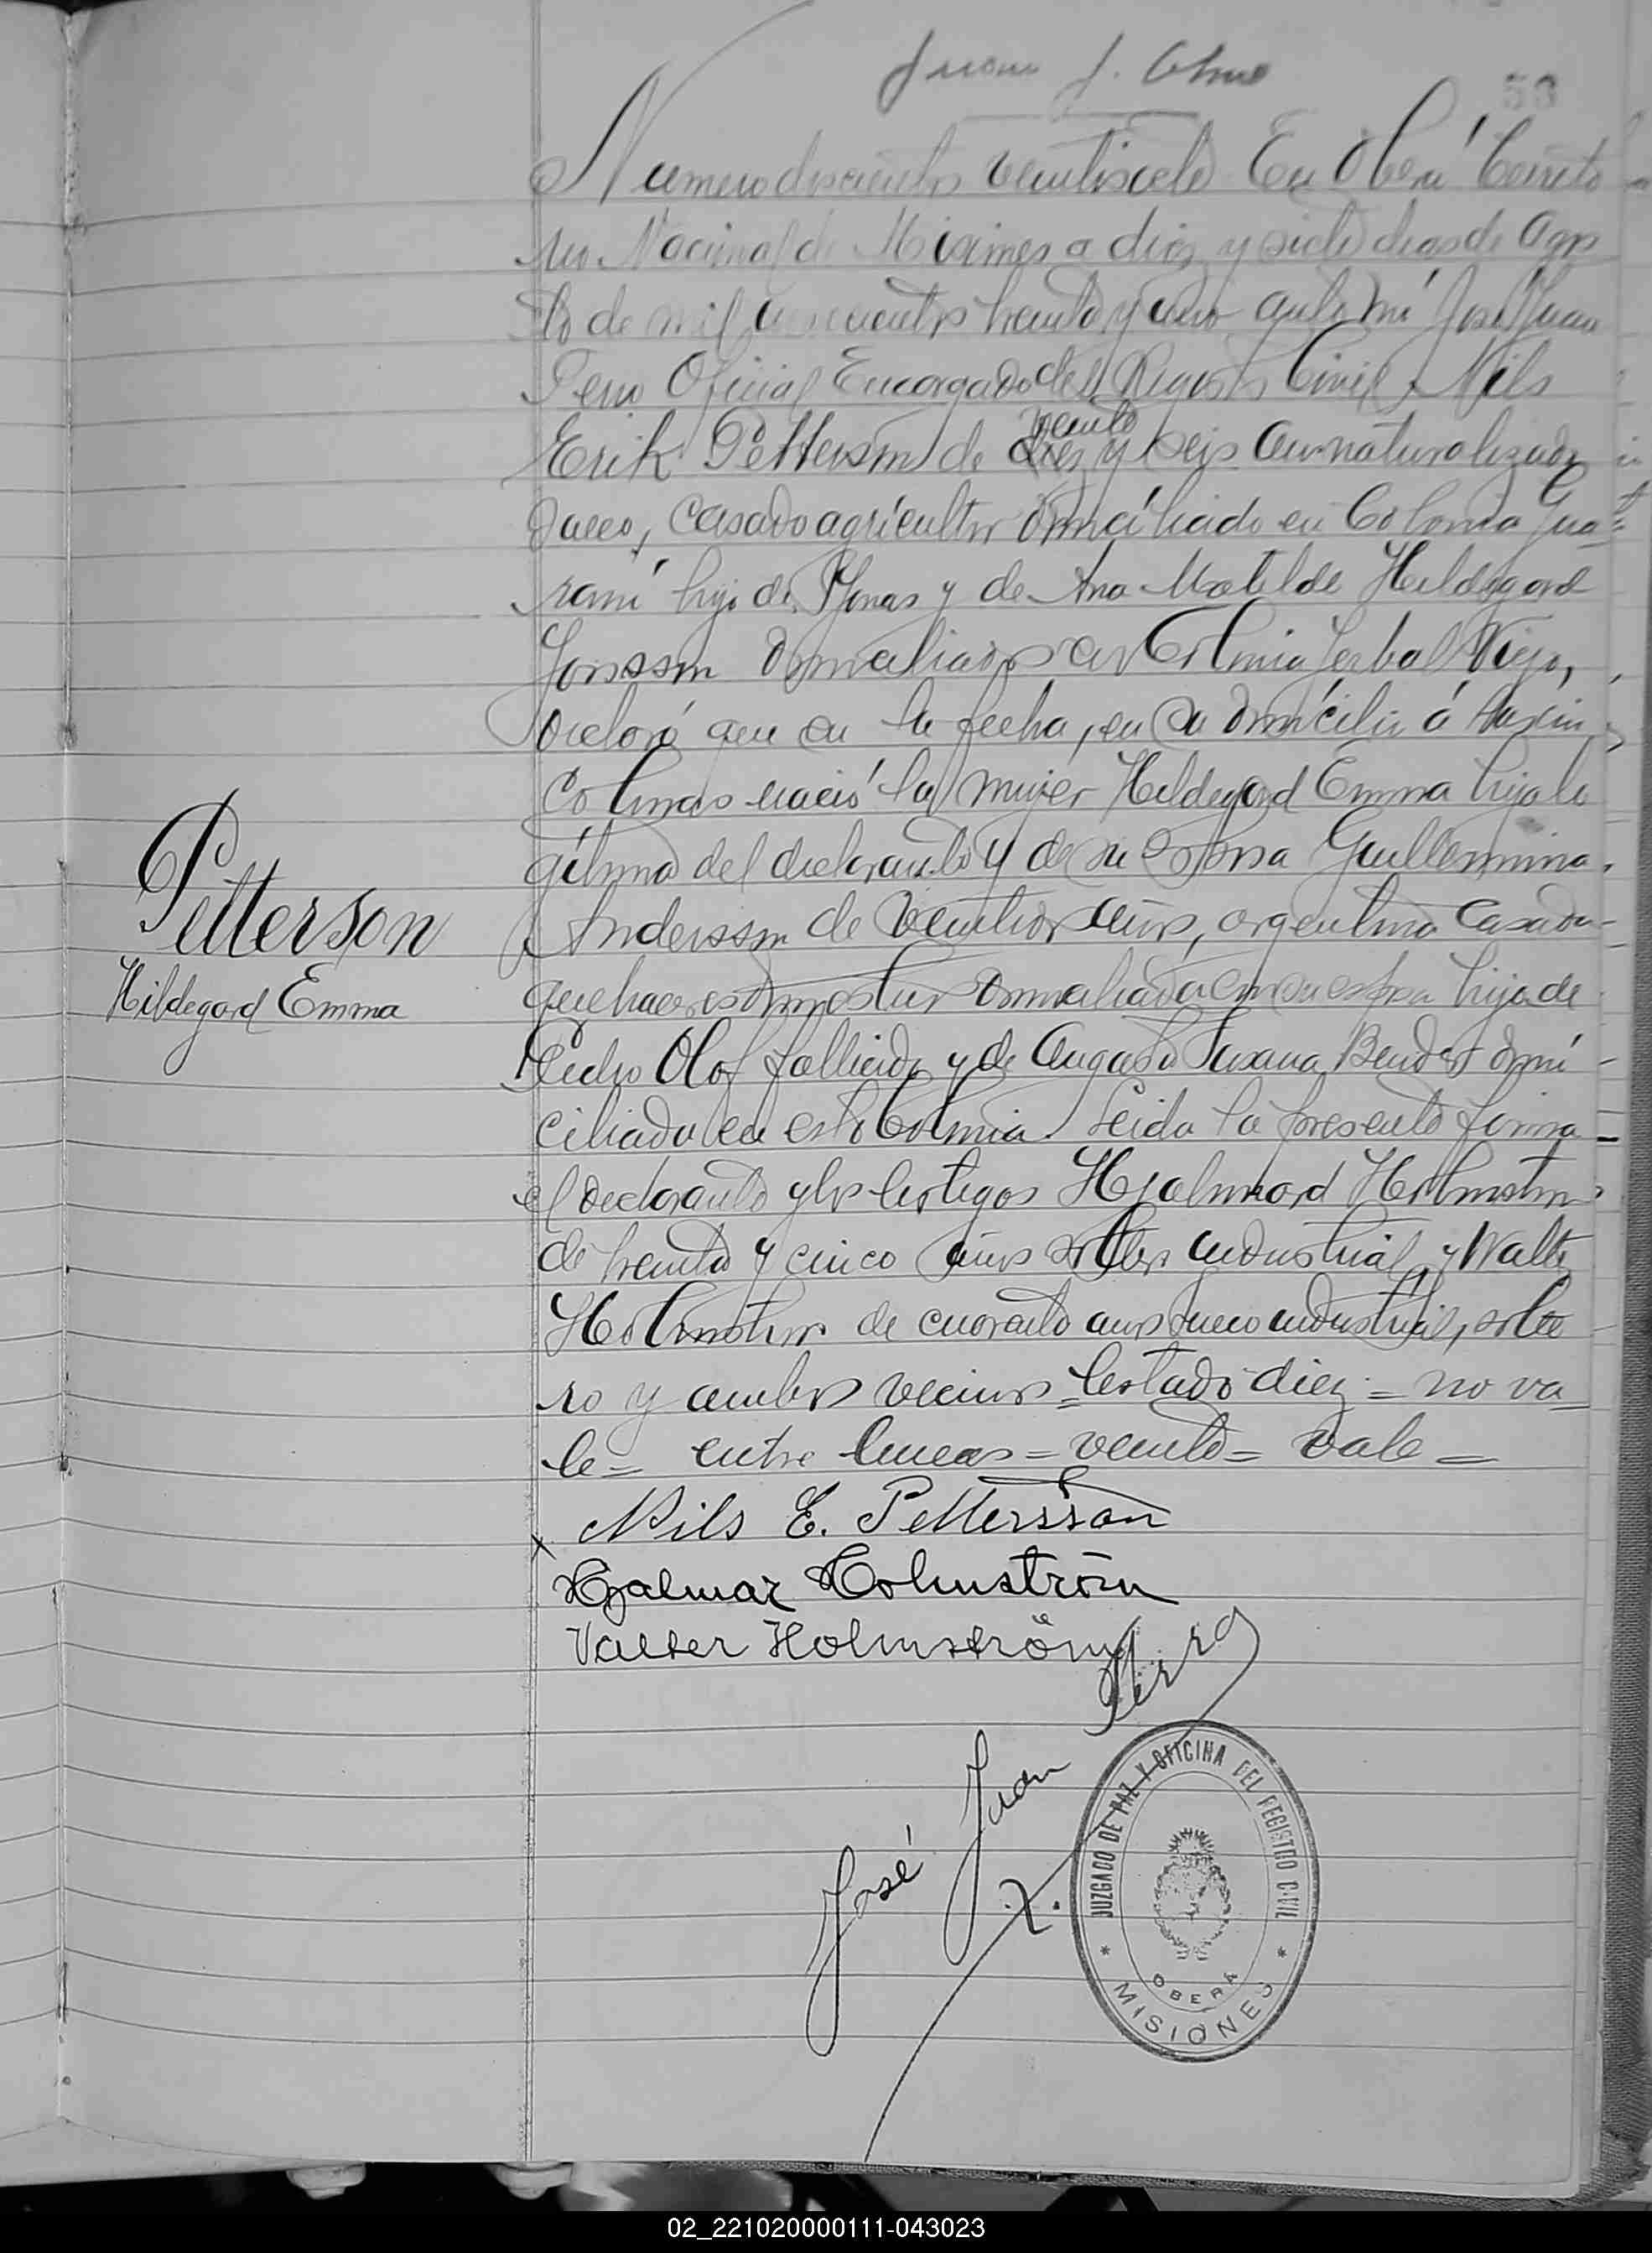 58
Numero doscientos veintisiete En Oberá Territo
rio Nacional de Misiones a diez y siete dias de Agos
to de mil novecientos treinta y uno ante mi José Juan
Oficial Encargado del Registro Civil, Nils
veinte
Erik Petterson de diez y seis años naturalizado
sueco, casado agricultor domiciliado en Colonia Gua-
raní hijo de Jonas y de Ana Matilde Hildegard
Jonsson domiciliados en Colonia Yerbal Viejo,
declaró que en la fecha, en su domicilio á
nació la mujer Hildegard Emma hija le
gitima del declarante y de su esposa Guillermina
Andersson de años, argentina casada
quehaceres domesticos domiciliada con su esposo hija de
Pedro Olof fallecido y de Augusta Susana domi
ciliada en esta Colonia. Leida la presente firma
el declarante y los testigos Hjalmard Holmstrom
de treinta y cinco años soltero industrial, y Walter
Holmstrom de cuarenta años sueco industrial, solte
ro y ambos vecinos = testado diez = no va
le = entre lineas = veinte = vale =
Petterson
Hildegard Emma
x Nils E. Pettersson
Hjalmar Holmström
Valter Holmström
José Juan Perro
JUZGADO DE PAZ Y OFICINA DEL REGISTRO CIVIL
* OBERÁ *
MISIONES
02_221020000111-043023